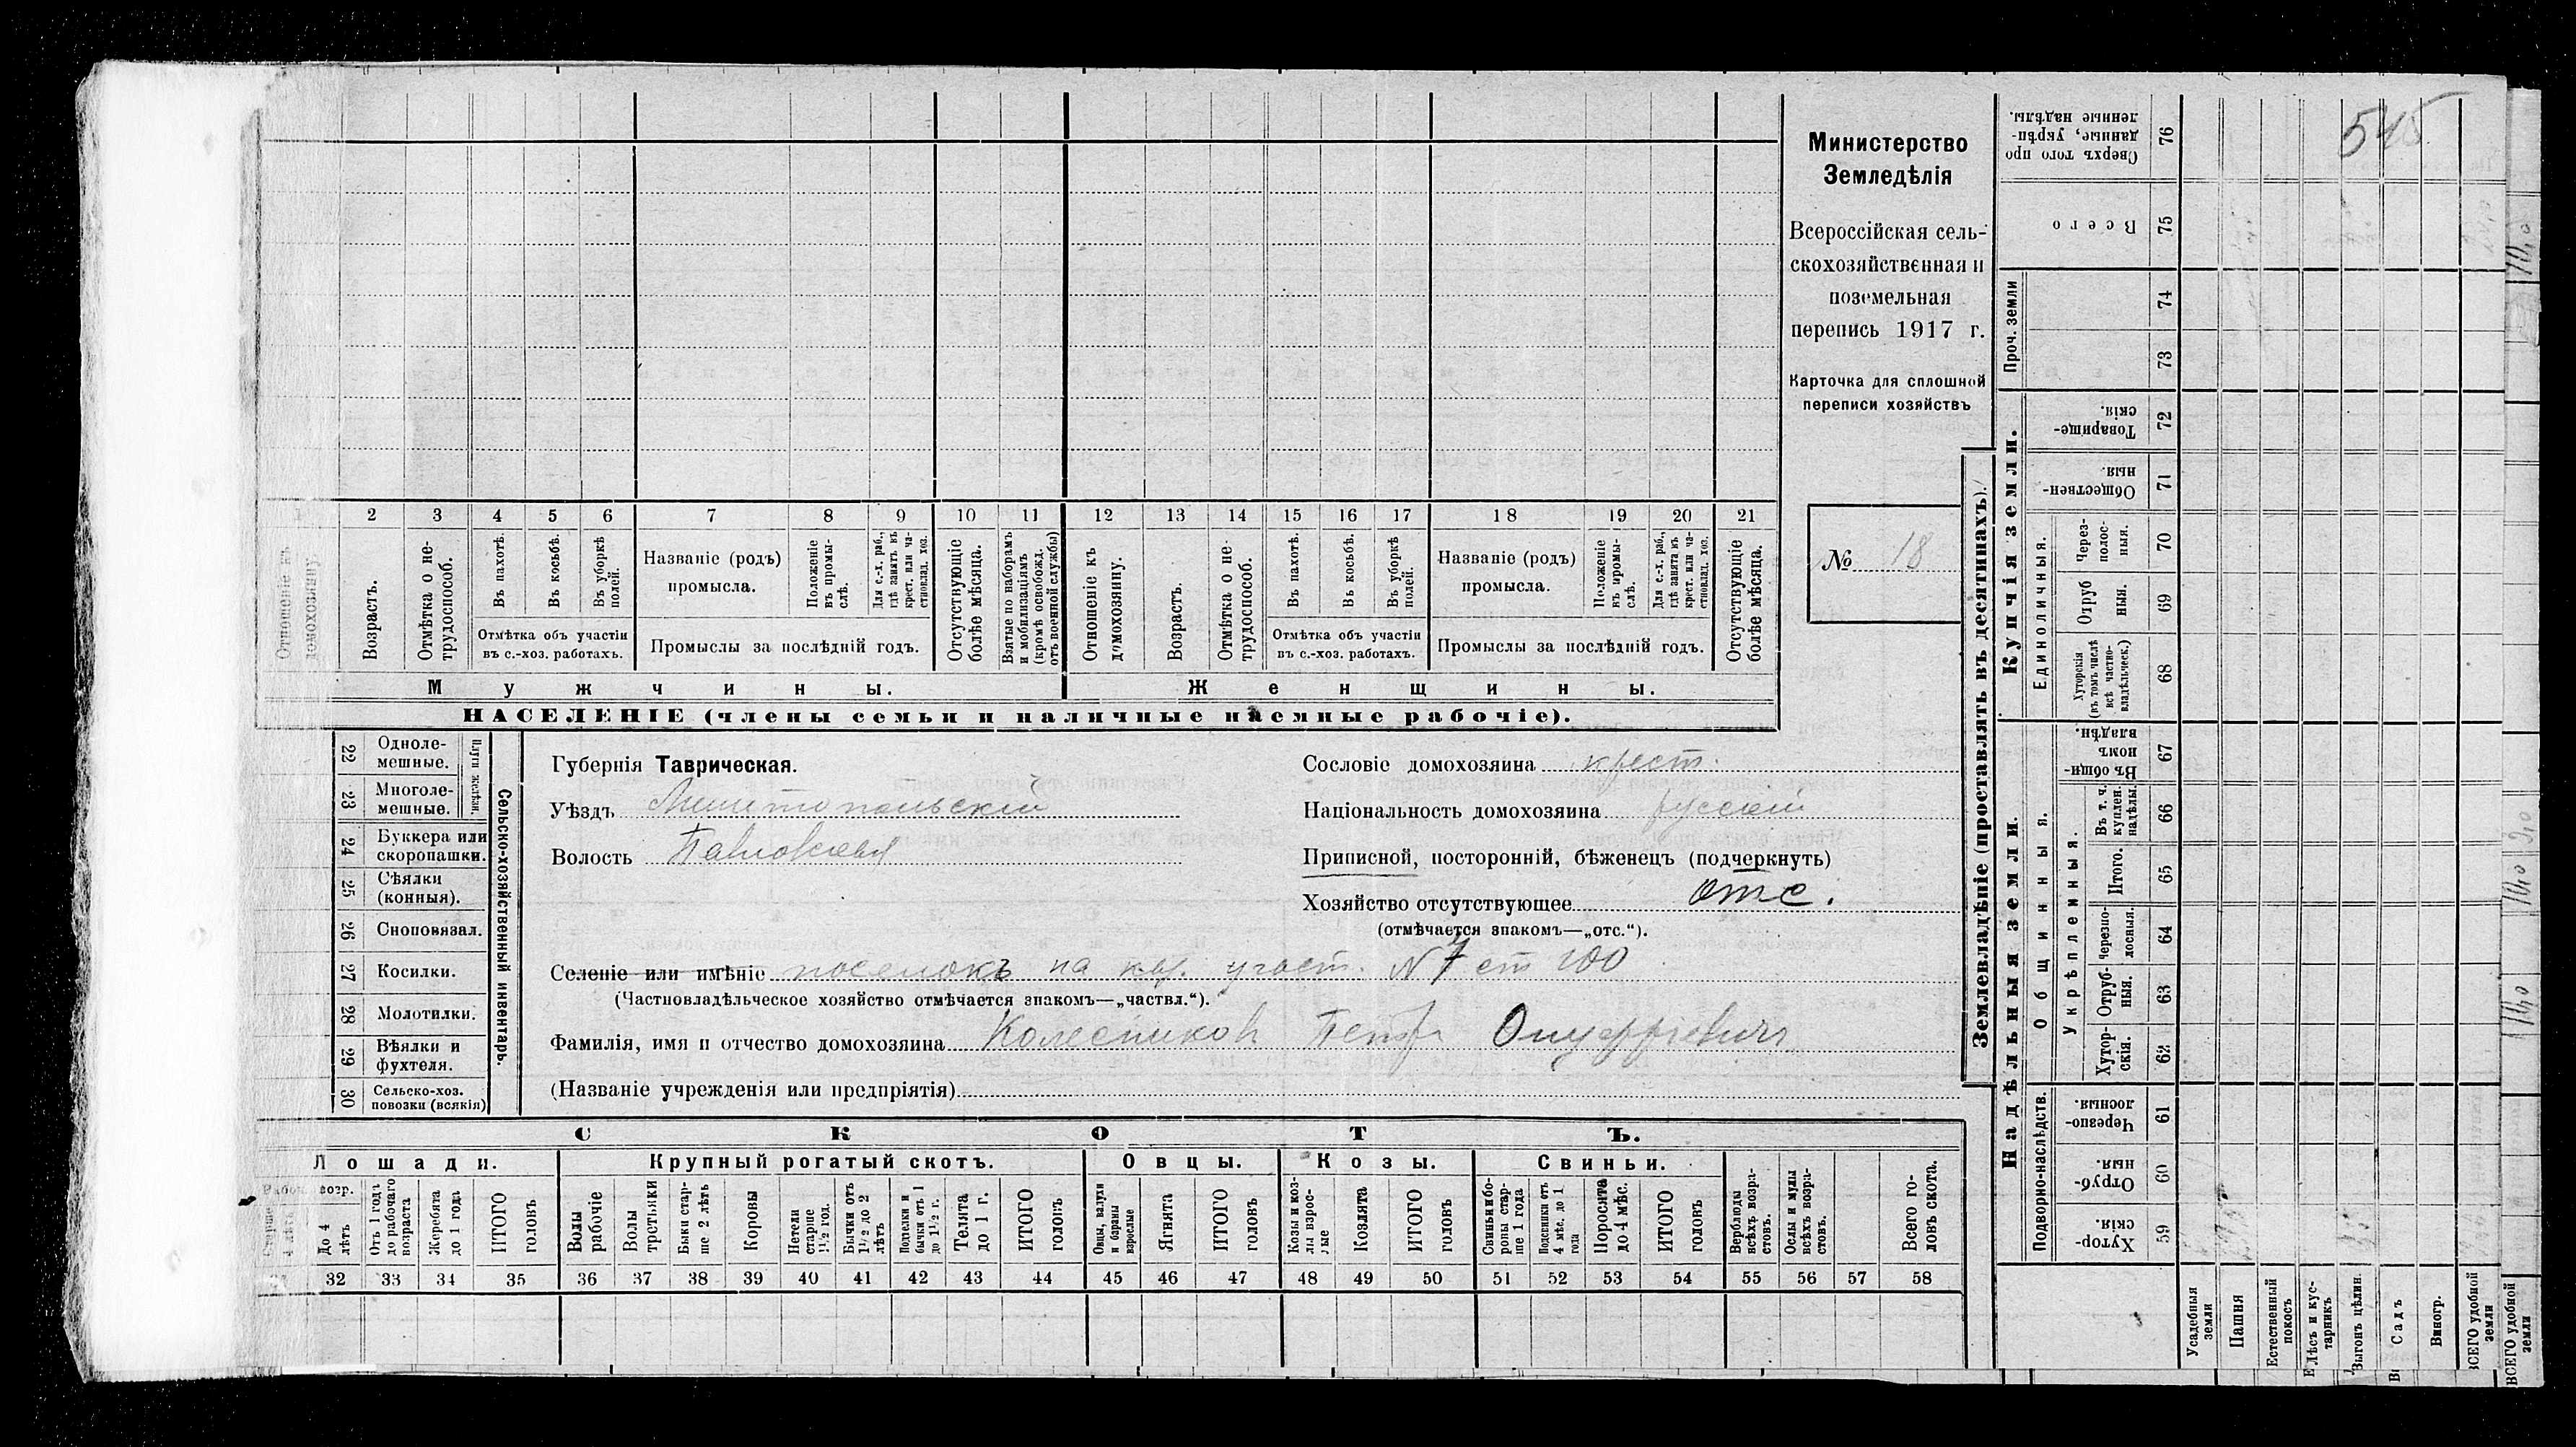 545
Министерство
Земледѣлія
Всероссійская сель-
скохозяйственная и
поземельная
перепись 1917 г.
Карточка для сплошной
переписи хозяйствъ
№ 18
2 3 4 5 6 7 8 9 10 11 12 13 14 15 16 17 18 19 20 21
Отношеніе къ домохозяину.
Возрастъ.
Отмѣтка о не-трудоспособ.
Въ пахотѣ.
Въ косьбѣ.
Въ уборкѣ полей.
Отмѣтка объ участіи въ с.-хоз. работахъ.
Названіе (родъ) промысла.
Положеніе въ промы-слѣ.
Для с.-х. раб., гдѣ занятъ въ крест. или ча-стновлад. хоз.
Промыслы за послѣдній годъ.
Отсутствующіе болѣе мѣсяца.
Взятые по наборамъ и мобилизаціямъ (кромѣ освобожд. отъ военной службы)
Отношеніе къ домохозяину.
Возрастъ.
Отмѣтка о не-трудоспособ.
Въ пахотѣ.
Въ косьбѣ.
Въ уборкѣ полей.
Отмѣтка объ участіи въ с.-хоз. работахъ.
Названіе (родъ) промысла.
Положеніе въ промы-слѣ.
Для с.-х. раб., гдѣ занятъ въ крест. или ча-стновлад. хоз.
Промыслы за послѣдній годъ.
Отсутствующіе болѣе мѣсяца.
Мужчины. Женщины.
НАСЕЛЕНІЕ (члены семьи и наличные наемные рабочіе).
22 Одноле-мешные.
23 Многоле-мешные.
Плуги желѣзн.
24 Буккера или скоропашки.
25 Сѣялки (конныя).
26 Сноповязал.
27 Косилки.
28 Молотилки.
29 Вѣялки и фухтеля.
30 Сельско-хоз. повозки (всякія)
Сельско-хозяйственный инвентарь.
Губернія Таврическая.
Уѣздъ Мелитопольскій
Волость Павловская
Сословіе домохозяина крест.
Національность домохозяина русскій
Приписной, посторонній, бѣженецъ (подчеркнуть)
Хозяйство отсутствующее отс.
(отмѣчается знакомъ—„отс.“).
Селеніе или имѣніе поселокъ на каз. участ. № 7 ст 100
(Частновладѣльческое хозяйство отмѣчается знакомъ—„частвл.“).
Фамилія, имя и отчество домохозяина Колесников Петр Онуфріевич
(Названіе учрежденія или предпріятія)
СКОТЪ.
Лошади. Крупный рогатый скотъ. Овцы. Козы. Свиньи.
возр.
До 4 лѣтъ
Отъ 1 года до рабочаго возраста
Жеребята до 1 года
ИТОГО головъ
Волы рабочіе
Волы третьяки
Быки стар-ше 2 лѣтъ
Коровы
Нетели старше 1½ год.
Бычки отъ 1½ до 2 лѣтъ
Подтелки и бычки отъ 1 до 1½ г.
Телята до 1 г.
ИТОГО головъ
Овцы, валухи и бараны взрослые
Ягнята
ИТОГО головъ
Козы и коз-лы взрос-лые
Козлята
ИТОГО головъ
Свиньи и бо-ровы стар-ше 1 года
Подсвинки отъ 4 мѣс. до 1 года
Поросята до 4 мѣс.
ИТОГО головъ
Верблюды всѣхъ возра-стовъ.
Ослы и мулы всѣхъ возра-стовъ.
Всего го-ловъ скота.
32 33 34 35 36 37 38 39 40 41 42 43 44 45 46 47 48 49 50 51 52 53 54 55 56 57 58
Землевладѣніе (проставлять въ десятинахъ).
Надѣльныя земли. Купчія земли. Проч. земли
Подворно-наслѣдств.
Общинныя.
Укрѣпленныя.
Единоличныя.
Хутор-скія. 59
Отруб-ныя. 60
Черезпо-лосныя. 61
Хутор-скія. 62
Отруб-ныя. 63
черезпо-лосныя. 64
Итого. 65
Въ т. ч. куплен. надѣлы. 66
Въ общи-номъ владѣн. 67
Хуторскія (въ томъ числѣ всѣ частно-владѣльческ.) 68
Отруб ныя. 69
Через-полос-ныя. 70
Обществен-ныя. 71
Товарище-скія. 72
73
74
Всего 75
Сверхъ того про данные, укрѣп-ленные надѣлы. 76
Усадебныя земли
Пашня
Естественный покосъ
Лѣсъ и кус-тарникъ
Выгонъ цѣлин.
Садъ
Виногр.
ВСЕГО удобной земли
ВСЕГО удобной земли